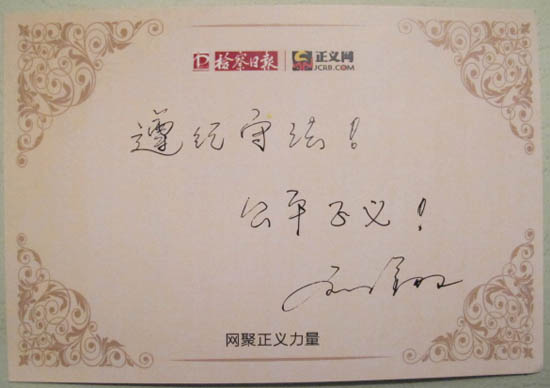 检察日报 正义网
JCRB.COM
遵纪守法！
公平正义！
网聚正义力量